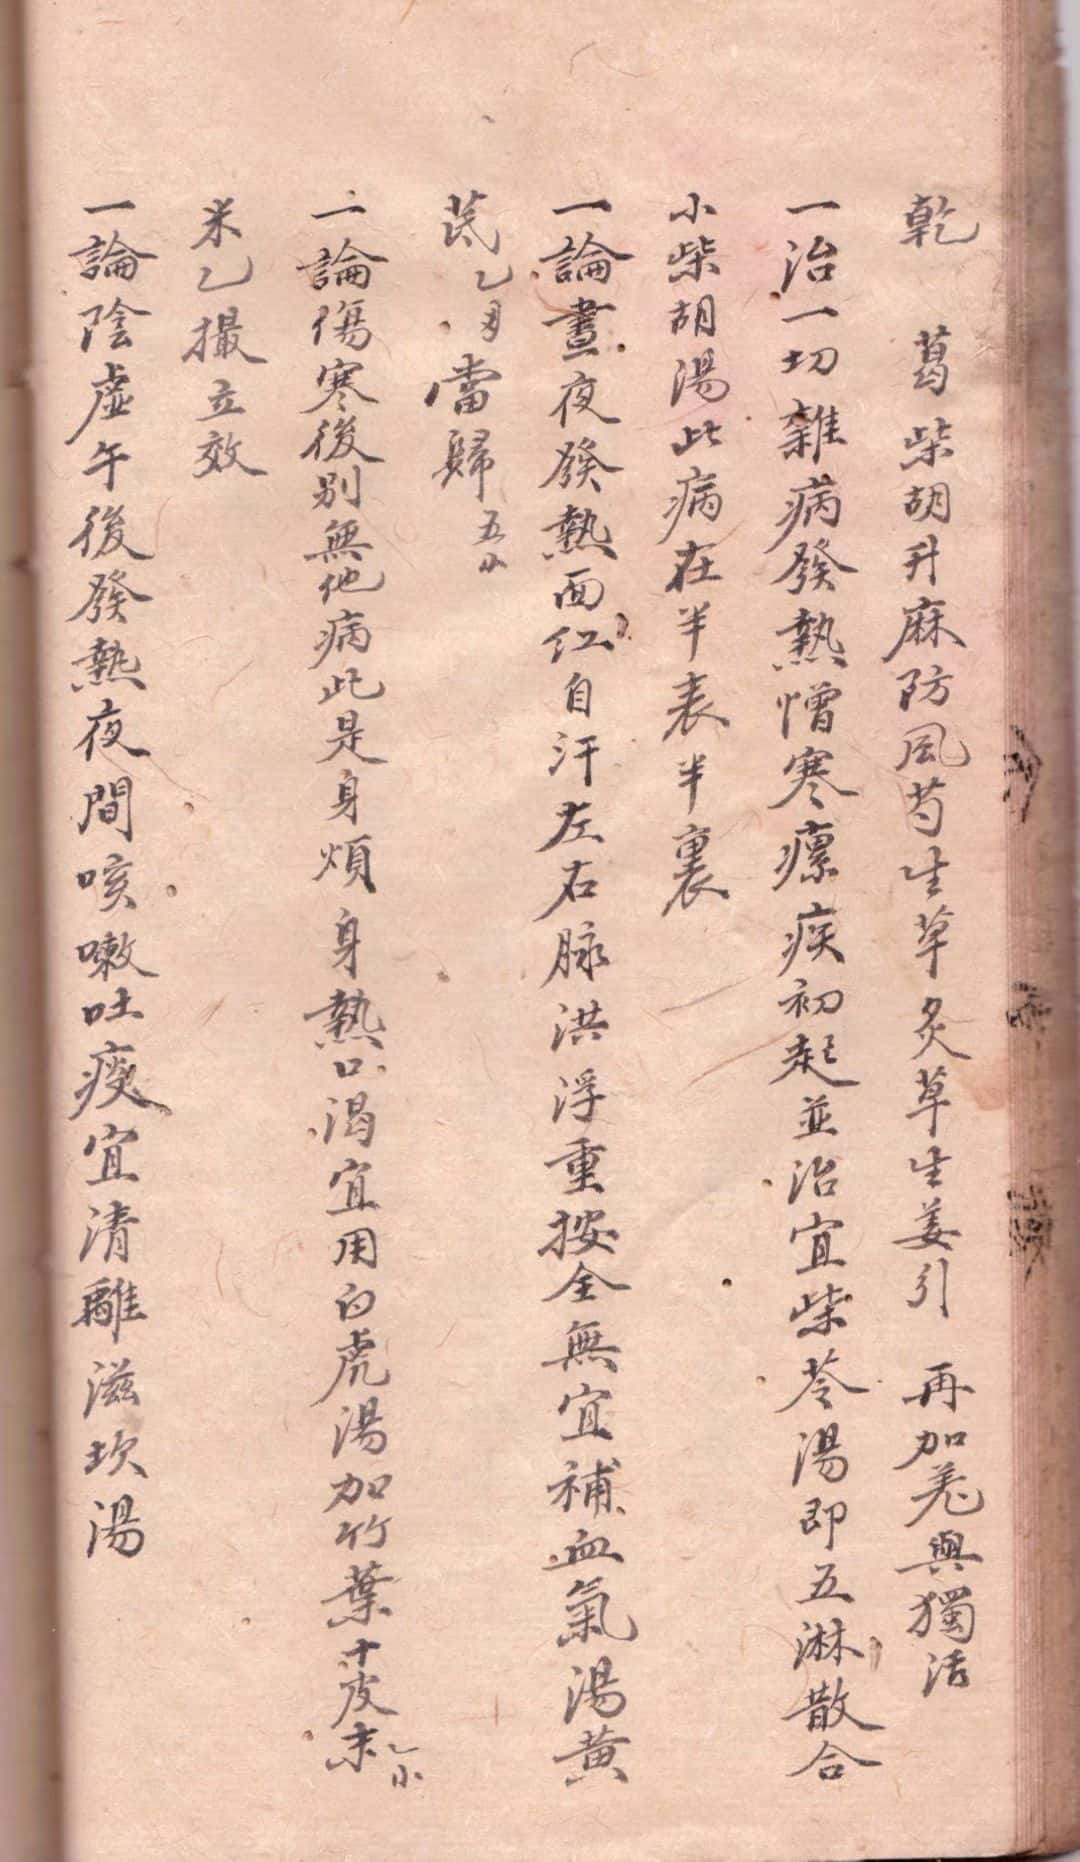 乾 葛柴胡升麻防風芍生草炙草生姜引 再加羌與獨活
一治一切雜病發熱憎寒瘭疾初起並治宜柴苓湯即五淋散合
小柴胡湯此病在半表半裏
一論晝夜發熱面紅自汗左右脉洪浮重按全無宜補血氣湯黄
茋乙 當歸五
一論傷寒後別無他病此是身煩身熱口渴宜用白虎湯加竹葉十皮末
米乙撮立效
一論陰虛午後發熱夜間咳嗽吐痰宜清離滋坎湯